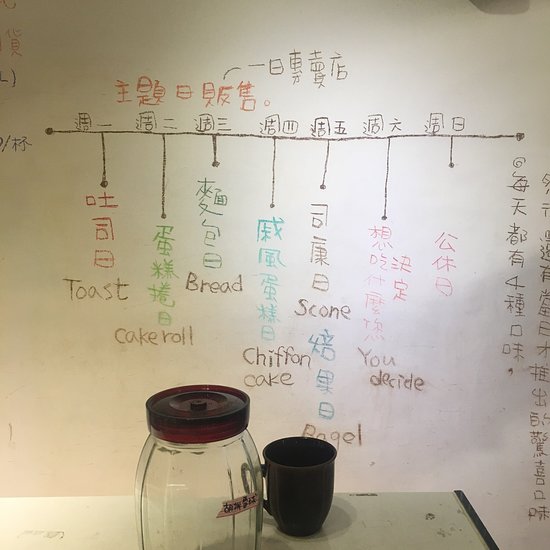 一日專賣店
主題日販售。
週一 週二 週三 週四 週五 週六 週日
吐司日
Toast
蛋糕捲日
Cake roll
麵包日
Bread
戚風蛋糕日
Chiffon
cake
司康日
Scone
焙果日
Bagel
想吃什麼您
決定
You
decide
公休日
@每天都有4種口味,
另有還有當日才推出的驚喜口味
貨
L)
/杯